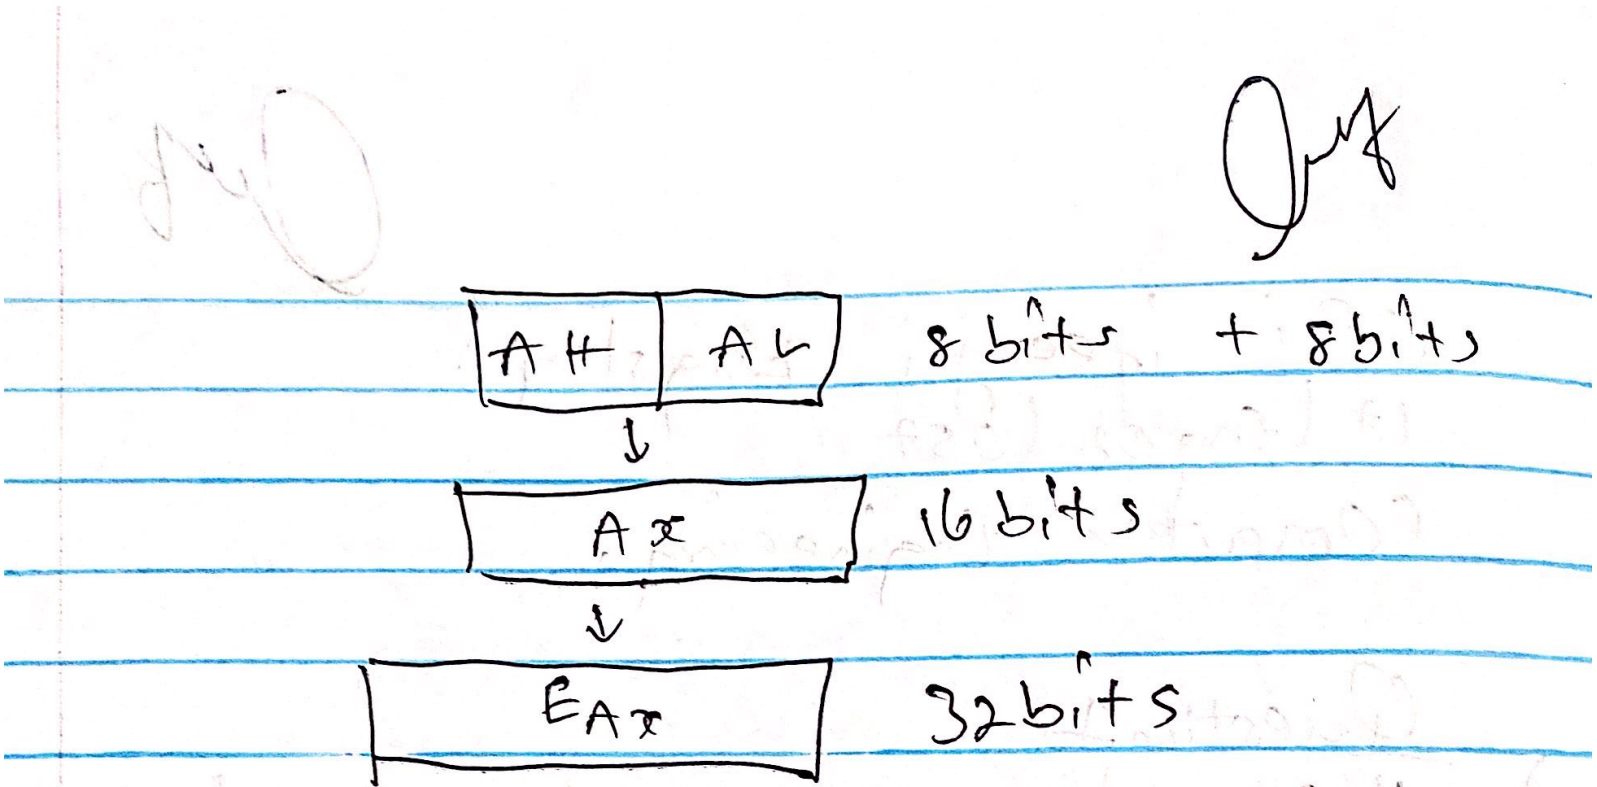 AH AL 8 bits + 8 bits
↓
Ax 16 bits
↓
EAx 32 bits